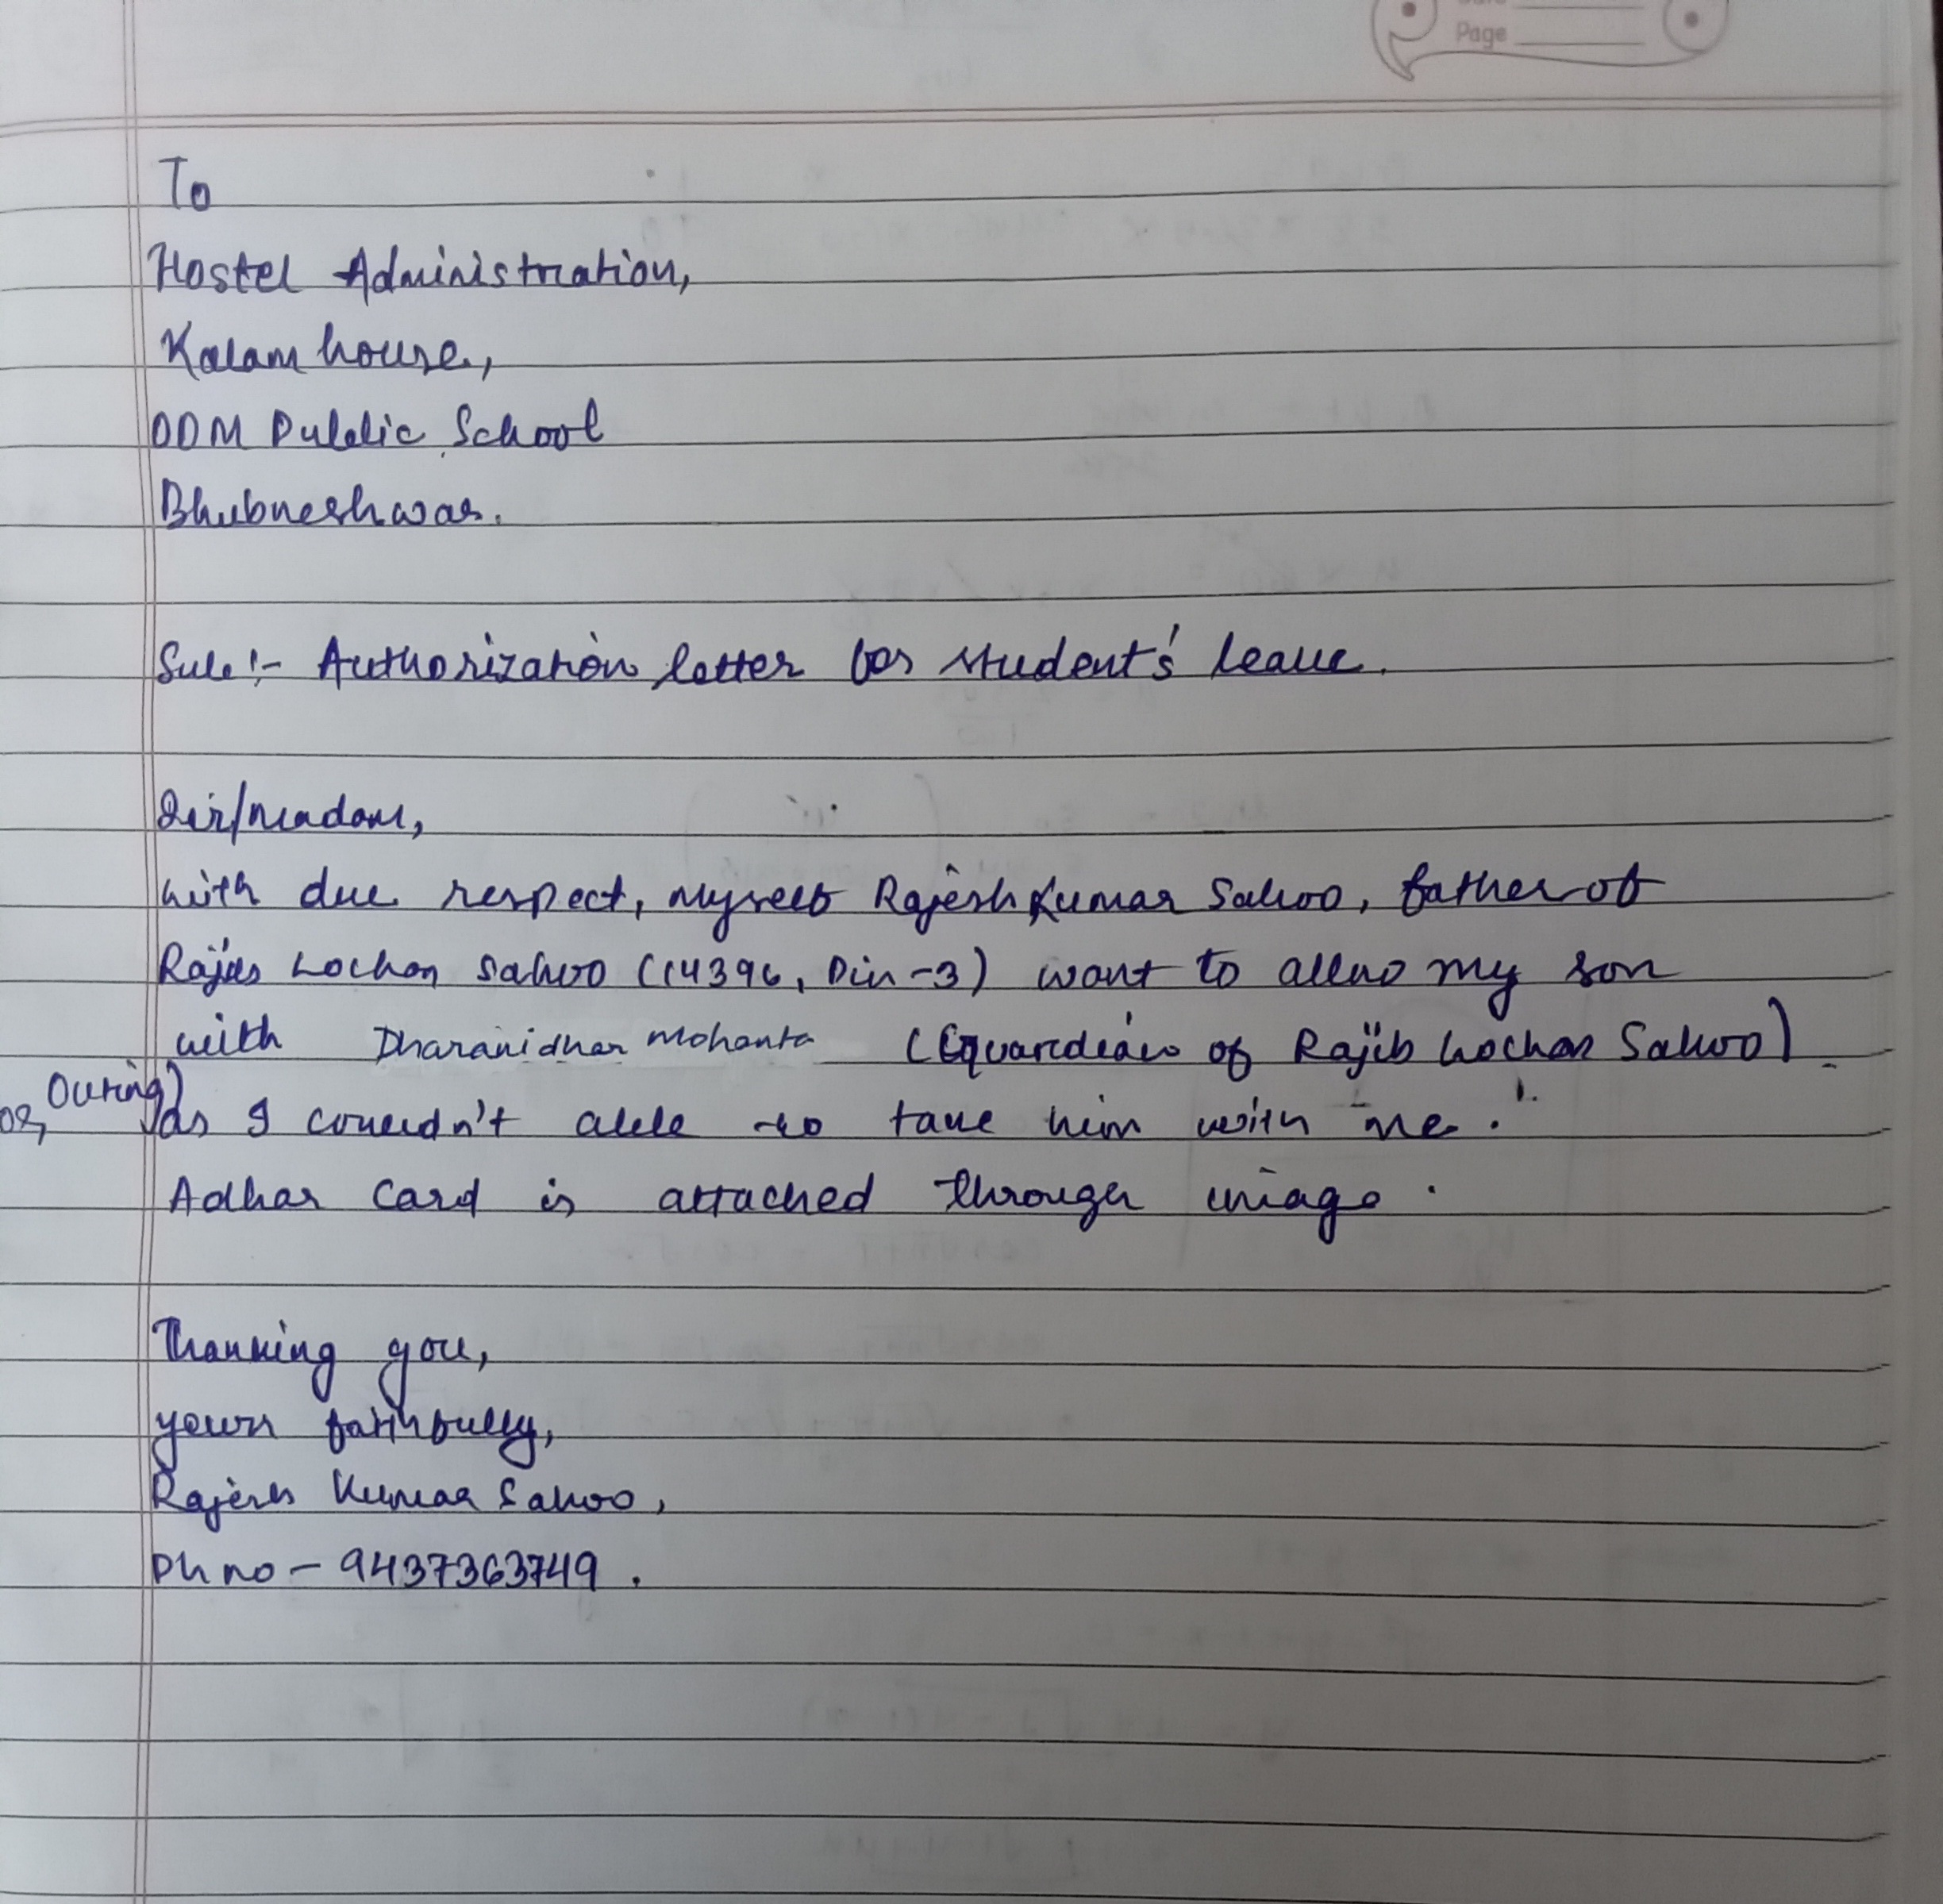 Page
To
Hostel Administration,
Kalam house,
ODM Public School
Bhubneshwar.
Sub:- Authorization letter for student's leave.
Sir/madam,
with due respect, myself Rajesh Kumar Sahoo, father of
Lochan Sahoo (14396, Din-3) want to allow my son
with Dharanidhar Mohanta (Guardian of Rajib Lochan Sahoo)
as I couldn't able to take him with me.
Adhar Card is attached through image.
Thanking you,
yours faithfully,
Rajesh Kumar Sahoo,
Ph no - 9437363749.